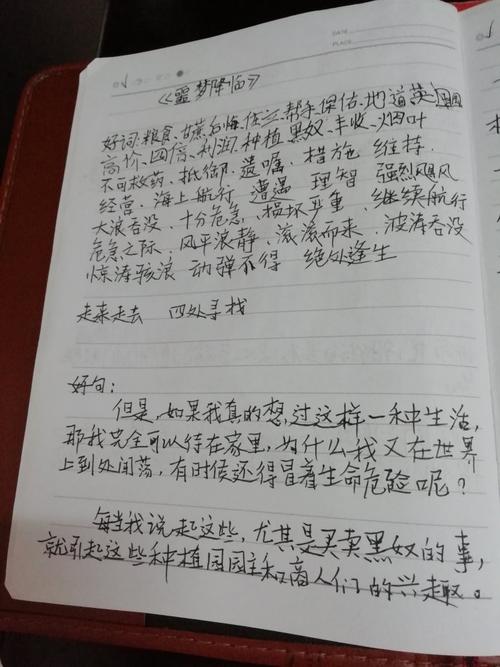 DATE
PLACE
《噩梦降临》
好词:粮食、甘蔗、后悔、成立、帮手、保佑、地道英国
高价、四倍、利润、种植、黑奴、丰收、烟叶
不可救药、抵御、遗嘱、措施 维持、
经营、海上航行、遭遇 理智 强烈飓风
大浪吞没、十分危急、损坏严重、继续航行
危急之际、风平浪静、滚滚而来、波涛吞没
惊涛骇浪 动弹不得 绝处逢生
走来走去 四处寻找
好句:
但是,如果我真的想,过这样一种生活,
那我完全可以待在家里,为什么我又在世界
上到处闯荡,有时侯还得冒着生命危险呢?
每当我说起这些,尤其是买卖黑奴的事,
就引起这些种植园园主和商人们的兴趣。